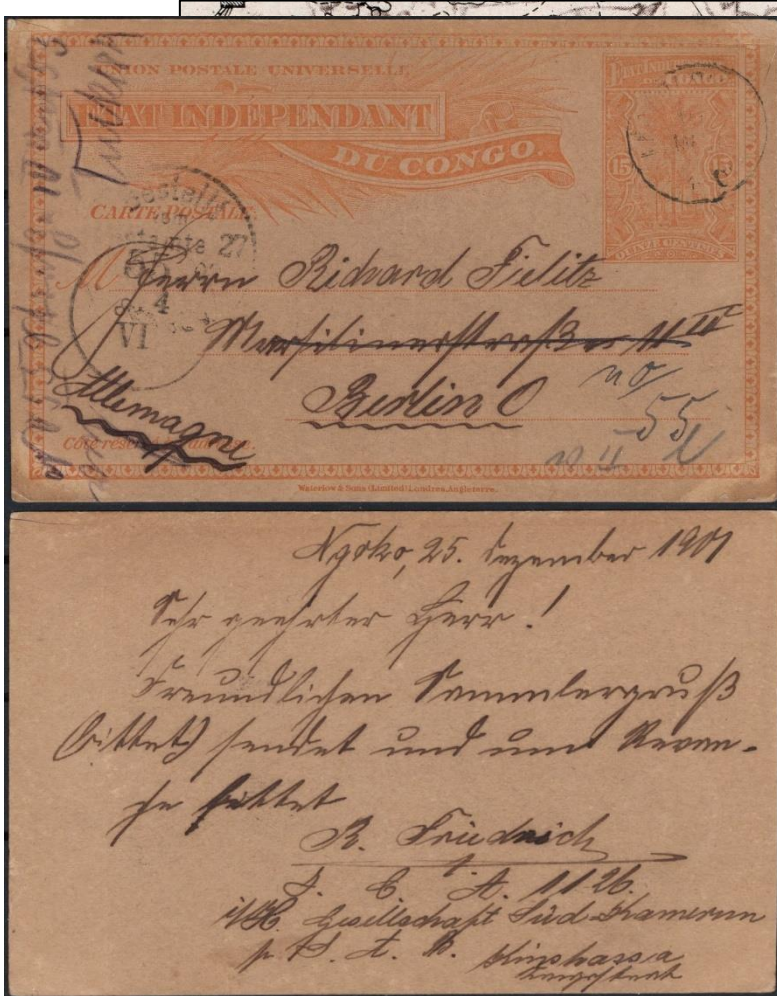 UNION POSTALE UNIVERSELLE
ETAT INDEPENDANT
DU CONGO.
CARTE POSTALE
15 15
QUINZE CENTIMES
Bestellt
vom
Postamte 27
4
VI
M
Herrn Richard Fielitz
Marsilinerstraße 11 III
Berlin O
no
55
Allemagne
Côté réservé à l'adresse.
Waterlow & Sons Limited, Londres, Angleterre.
Ngoko, 25. Dezember 1901
Sehr geehrter Herr!
Freundlichen Sammlergruß
(bittet) sendet und um Revan-
che bittet
R. Friedrich
A. 1126.
Gesellschaft Süd-Kamerun
Kinshassa